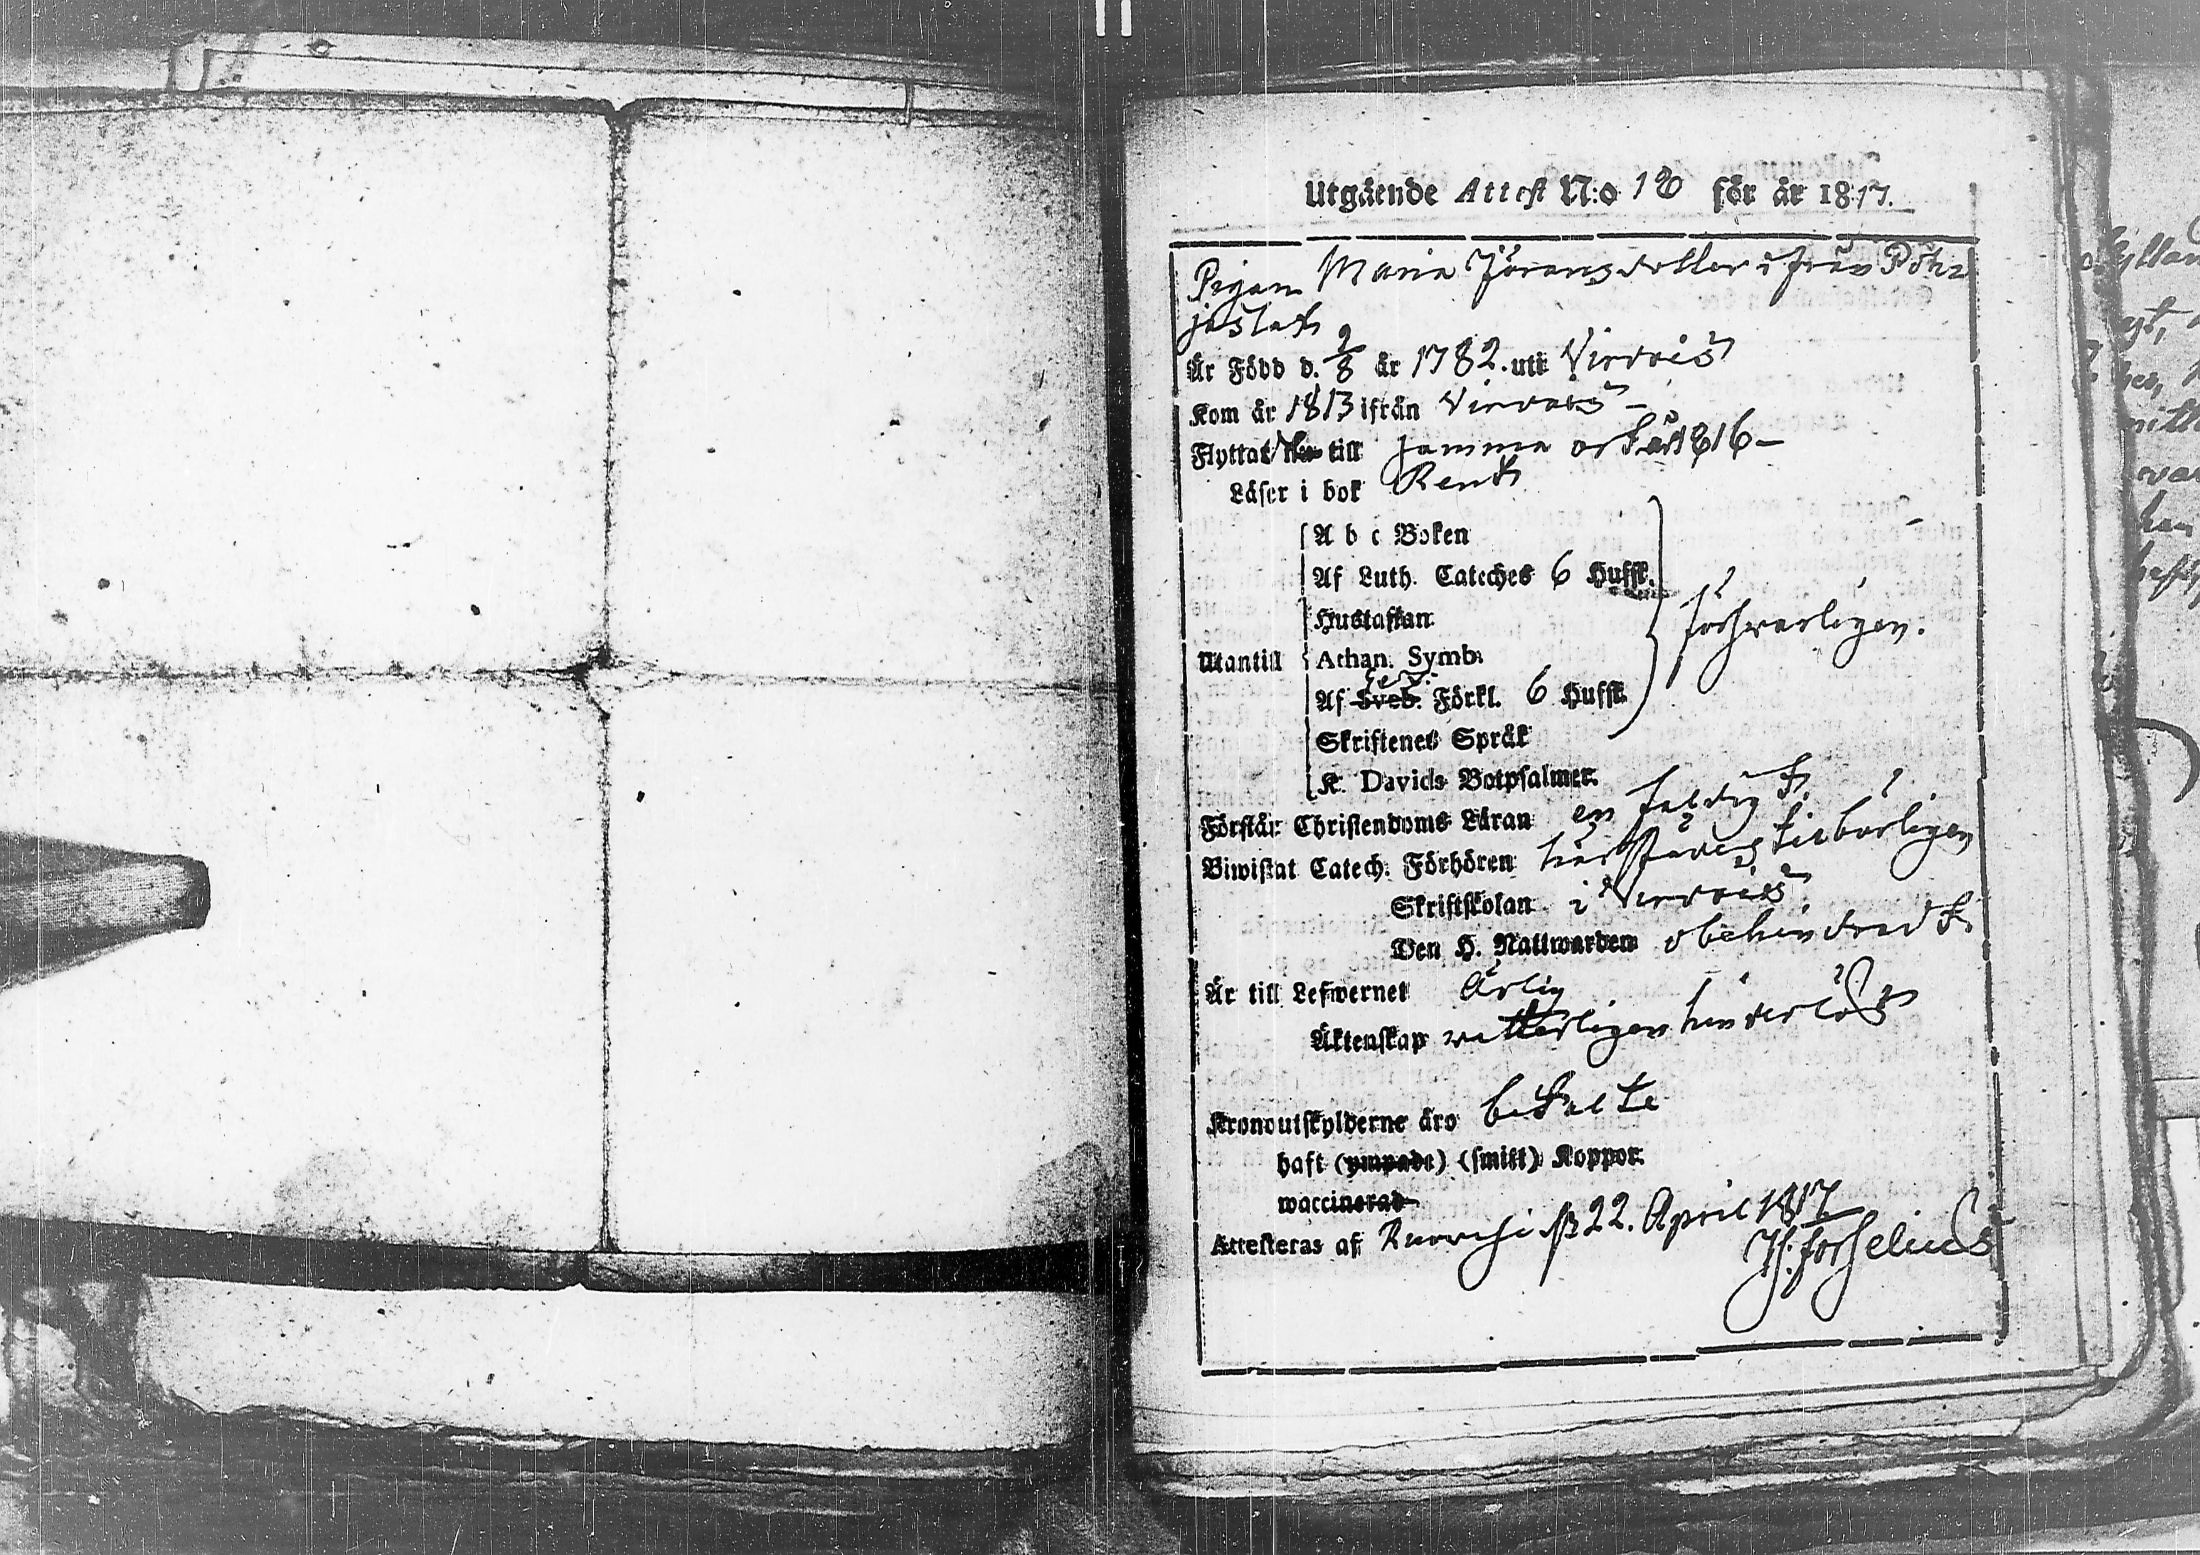 Utgående Attest N:o 18 för år 1817.
Pigan Maria Jöransdotter ifrån Pohz
jaslax
Är Född d. 2/8 år 1782. uti Virdois
Kom år 1813 ifrån Virdois –
Flyttat till samma ort år 1816 –
Läser i bok Rent
A b c Boken
Af Luth. Cateches 6 Hufst.
Hustaflan
försvarligen.
Utantill Athan. Symb.
Af Sveb. Förkl. 6 Hufst.
Skriftenes Språk
K. Davids Botpsalmer.
Förstår Christendoms Läran enfaldigt
Biwistat Catech. Förhören härstädes tillbörligen
Skriftskolan i Virdois
Den H. Nattwarden obehindradt
Är till Lefwernet Ärlig
Äktenskap vetterligen hinderlös
Kronoutskylderne äro betalte
haft (ympade) (smitt) Koppor.
waccinerad
Attesteras af Ruovesi 22. April 1817
Forselius